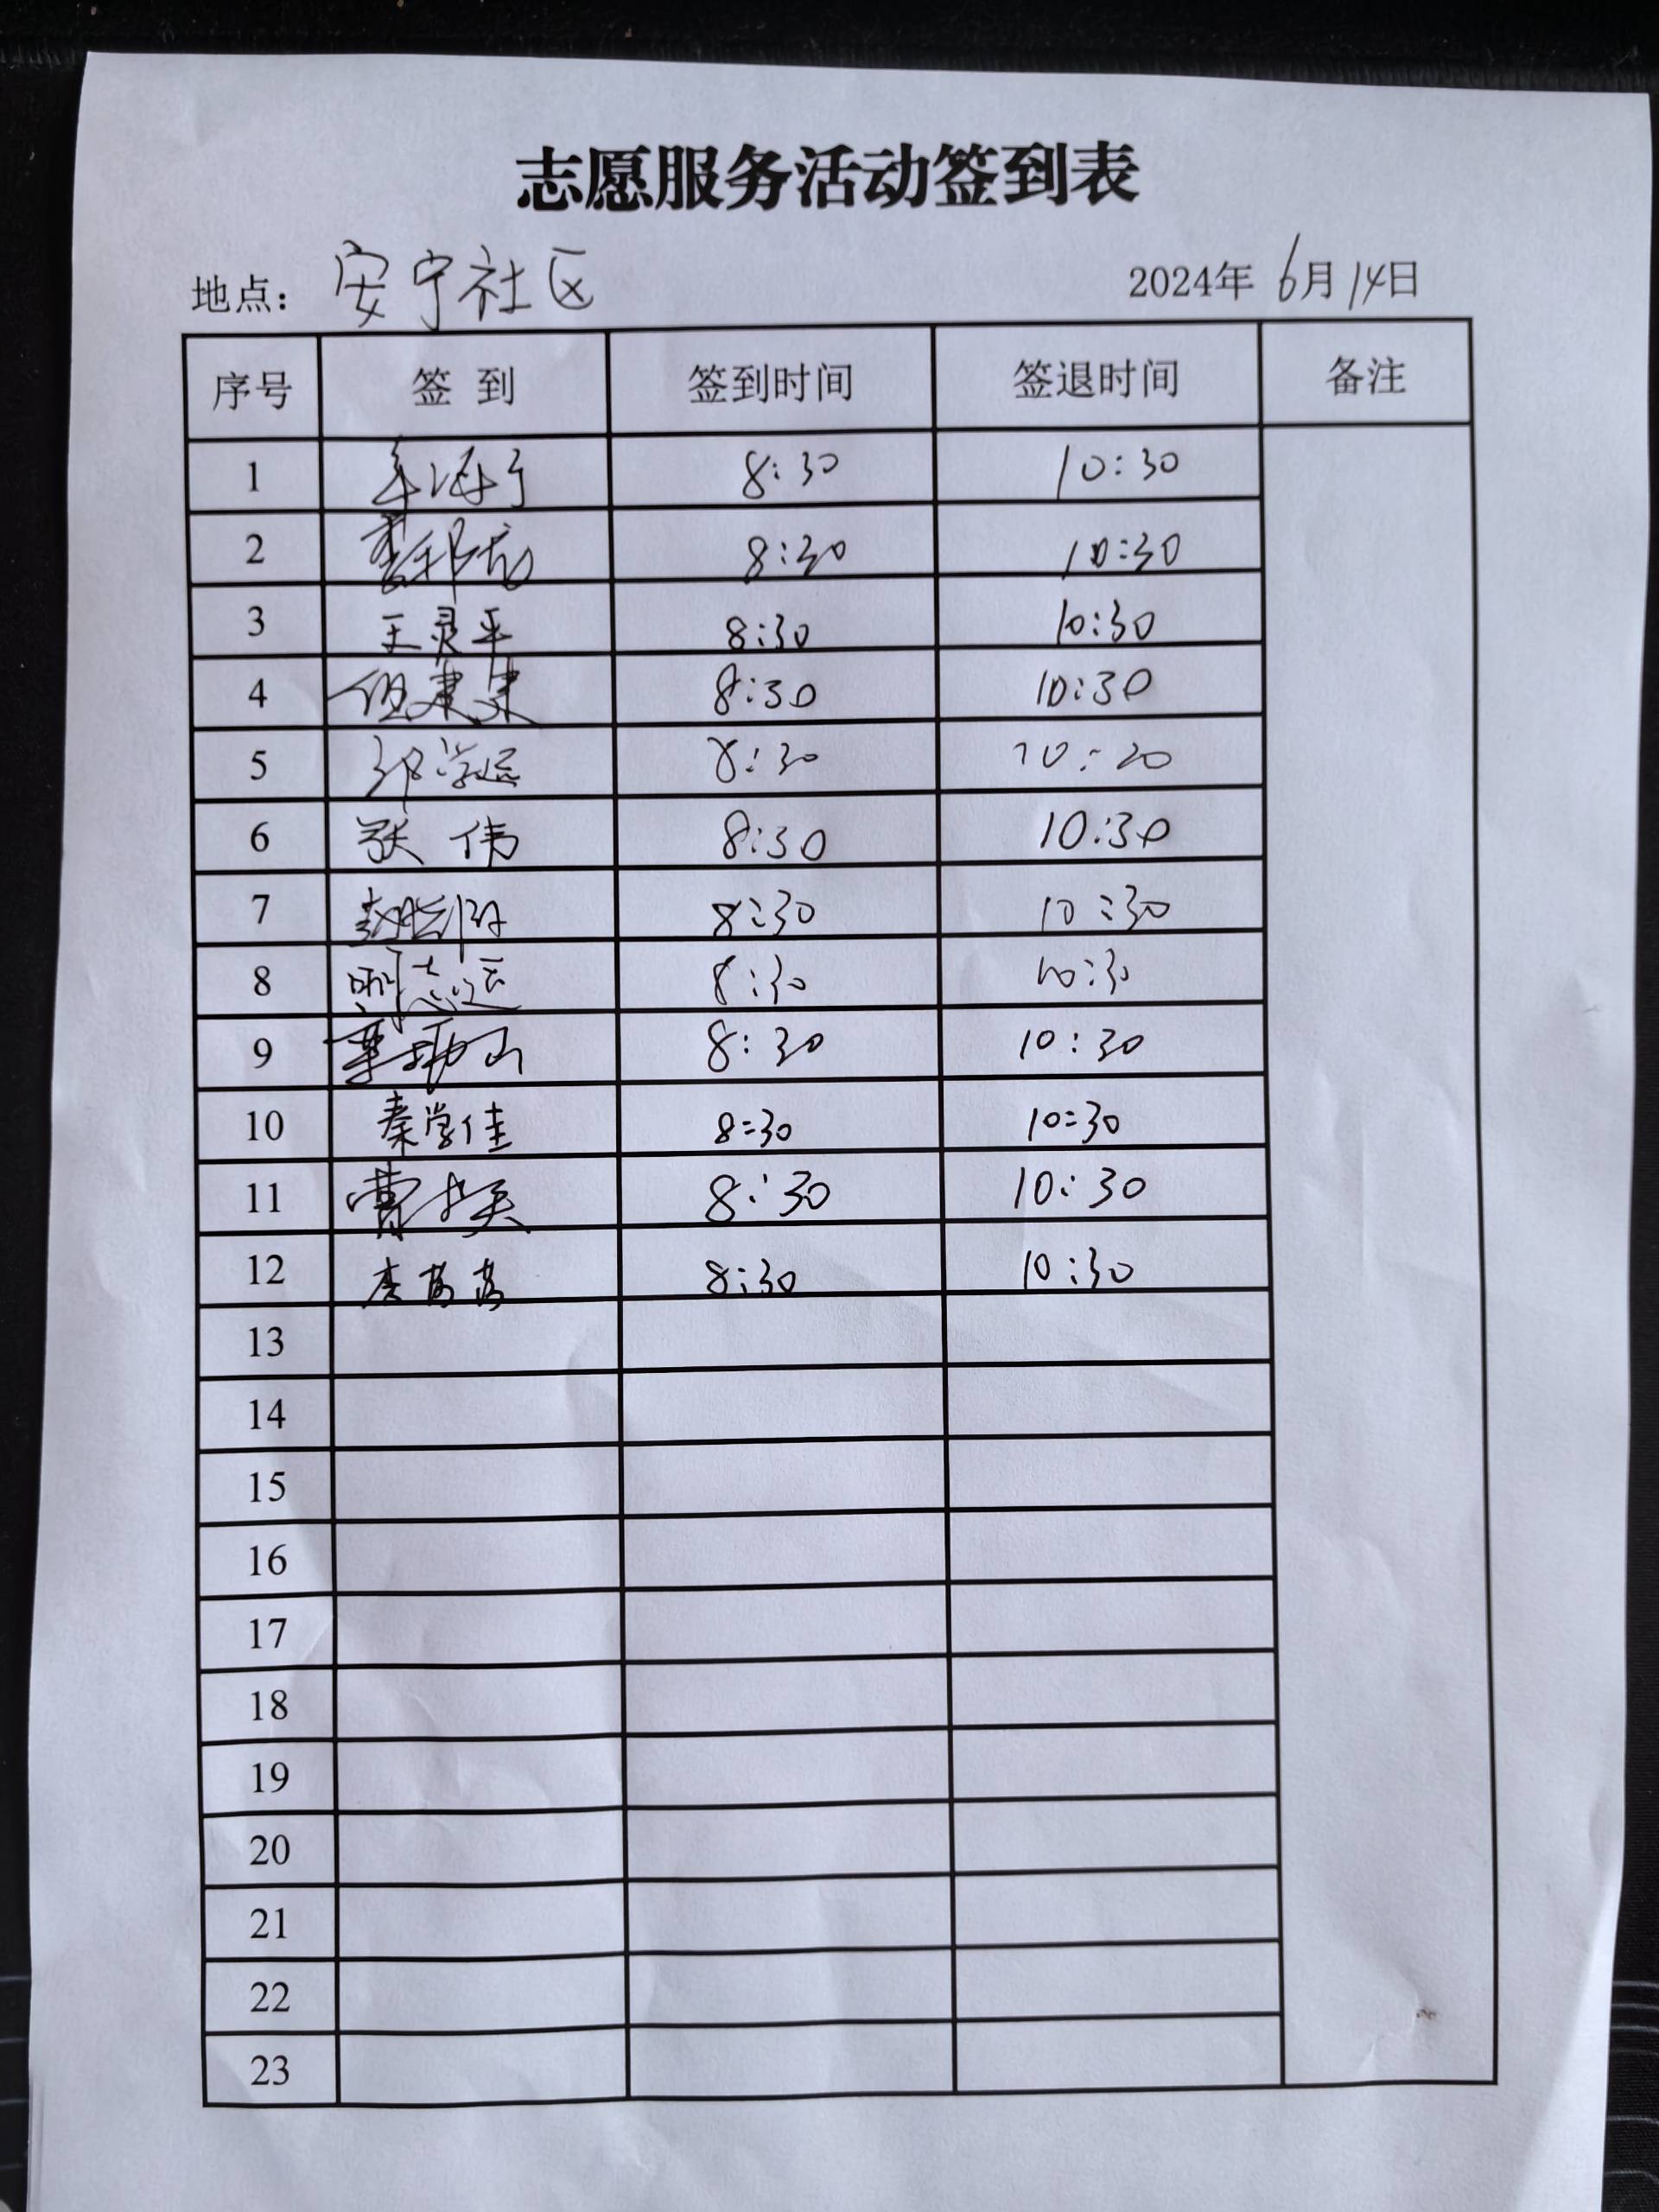 志愿服务活动签到表
地点: 安宁社区 2024年 6月14日
序号 签 到 签到时间 签退时间 备注
1 8:30 10:30
2 8:30 10:30
3 王灵平 8:30 10:30
4 8:30 10:30
5 8:30
6 张伟 8:30 10:30
7 8:30 10:30
8 8:30 10:30
9 8:30 10:30
10 秦学佳 8:30 10:30
11 8:30 10:30
12 8:30 10:30
13
14
15
16
17
18
19
20
21
22
23